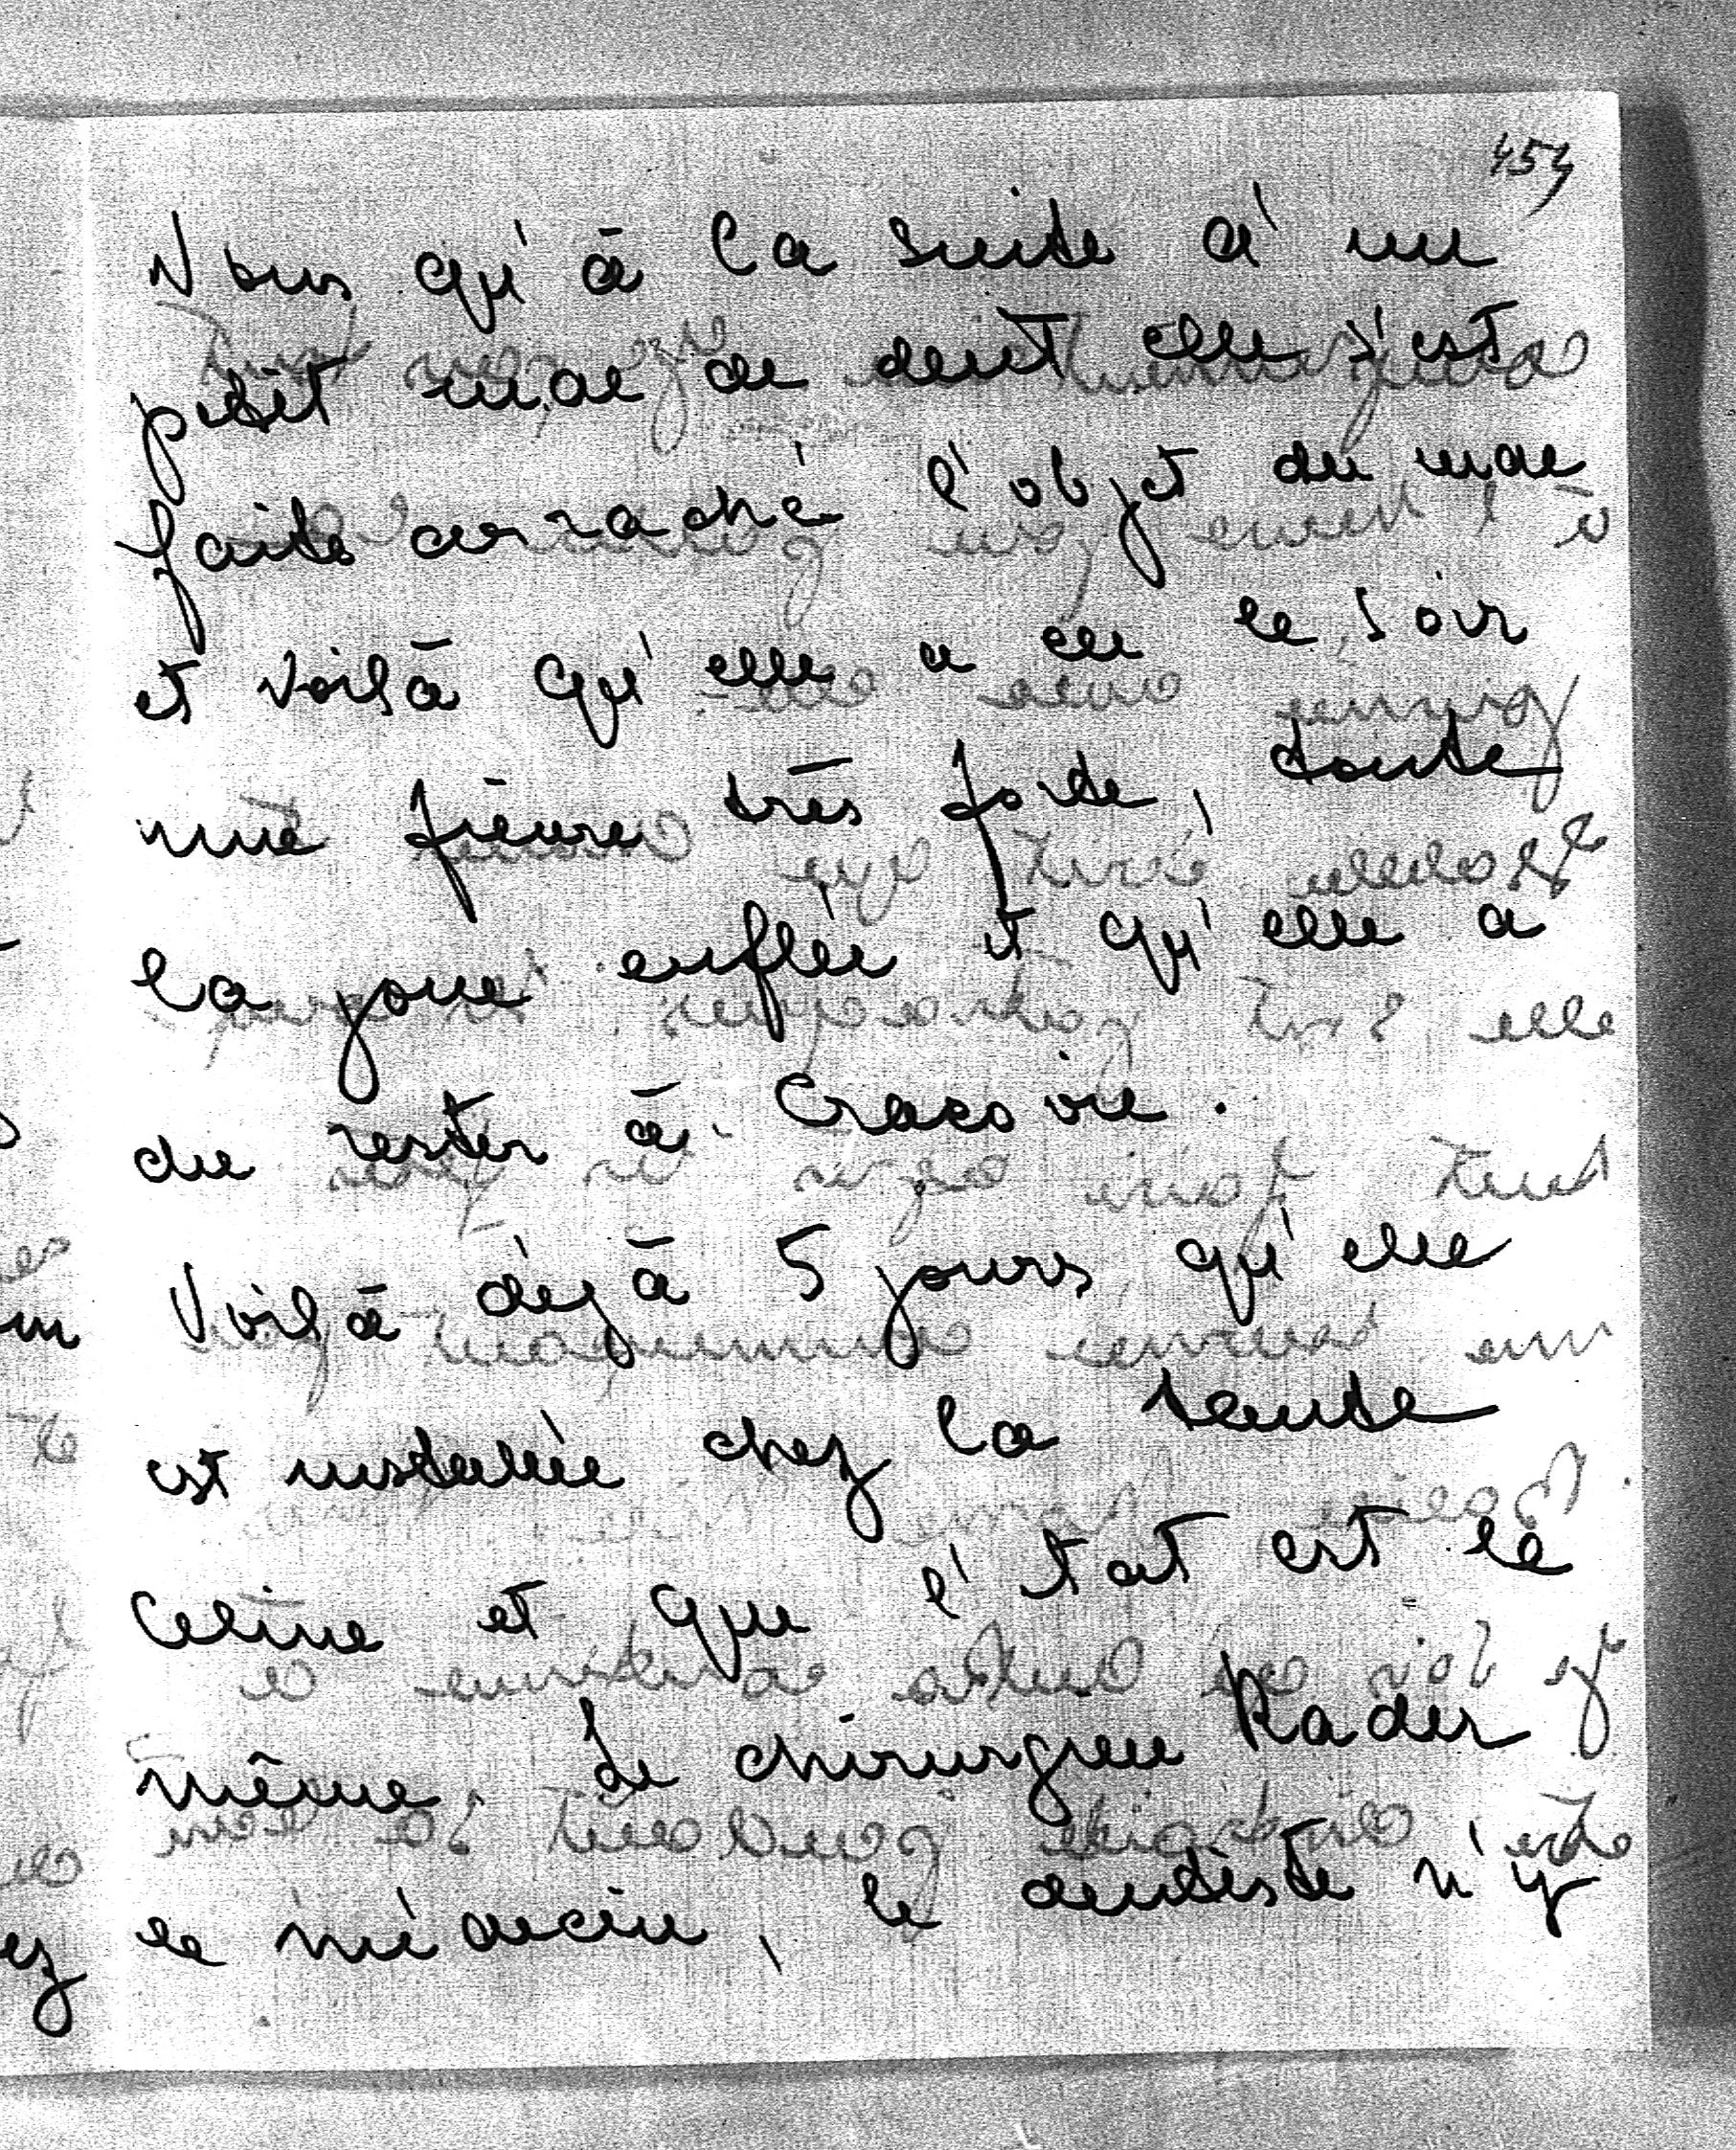 457
Vous qu'à la suite d'un
petit mal de dent elle s'est
faite arraché l'objet du mal
et voilà qu'elle a eu le soir
une fièvre très forte, toute
la joue enflée et qu'elle a
du rester à Cracovie.
Voilà déjà 5 jours qu'elle
est installée chez la tante
Celine et que l'état est le
même. Le chirurgien Rader
le médecin, le dentiste n'y